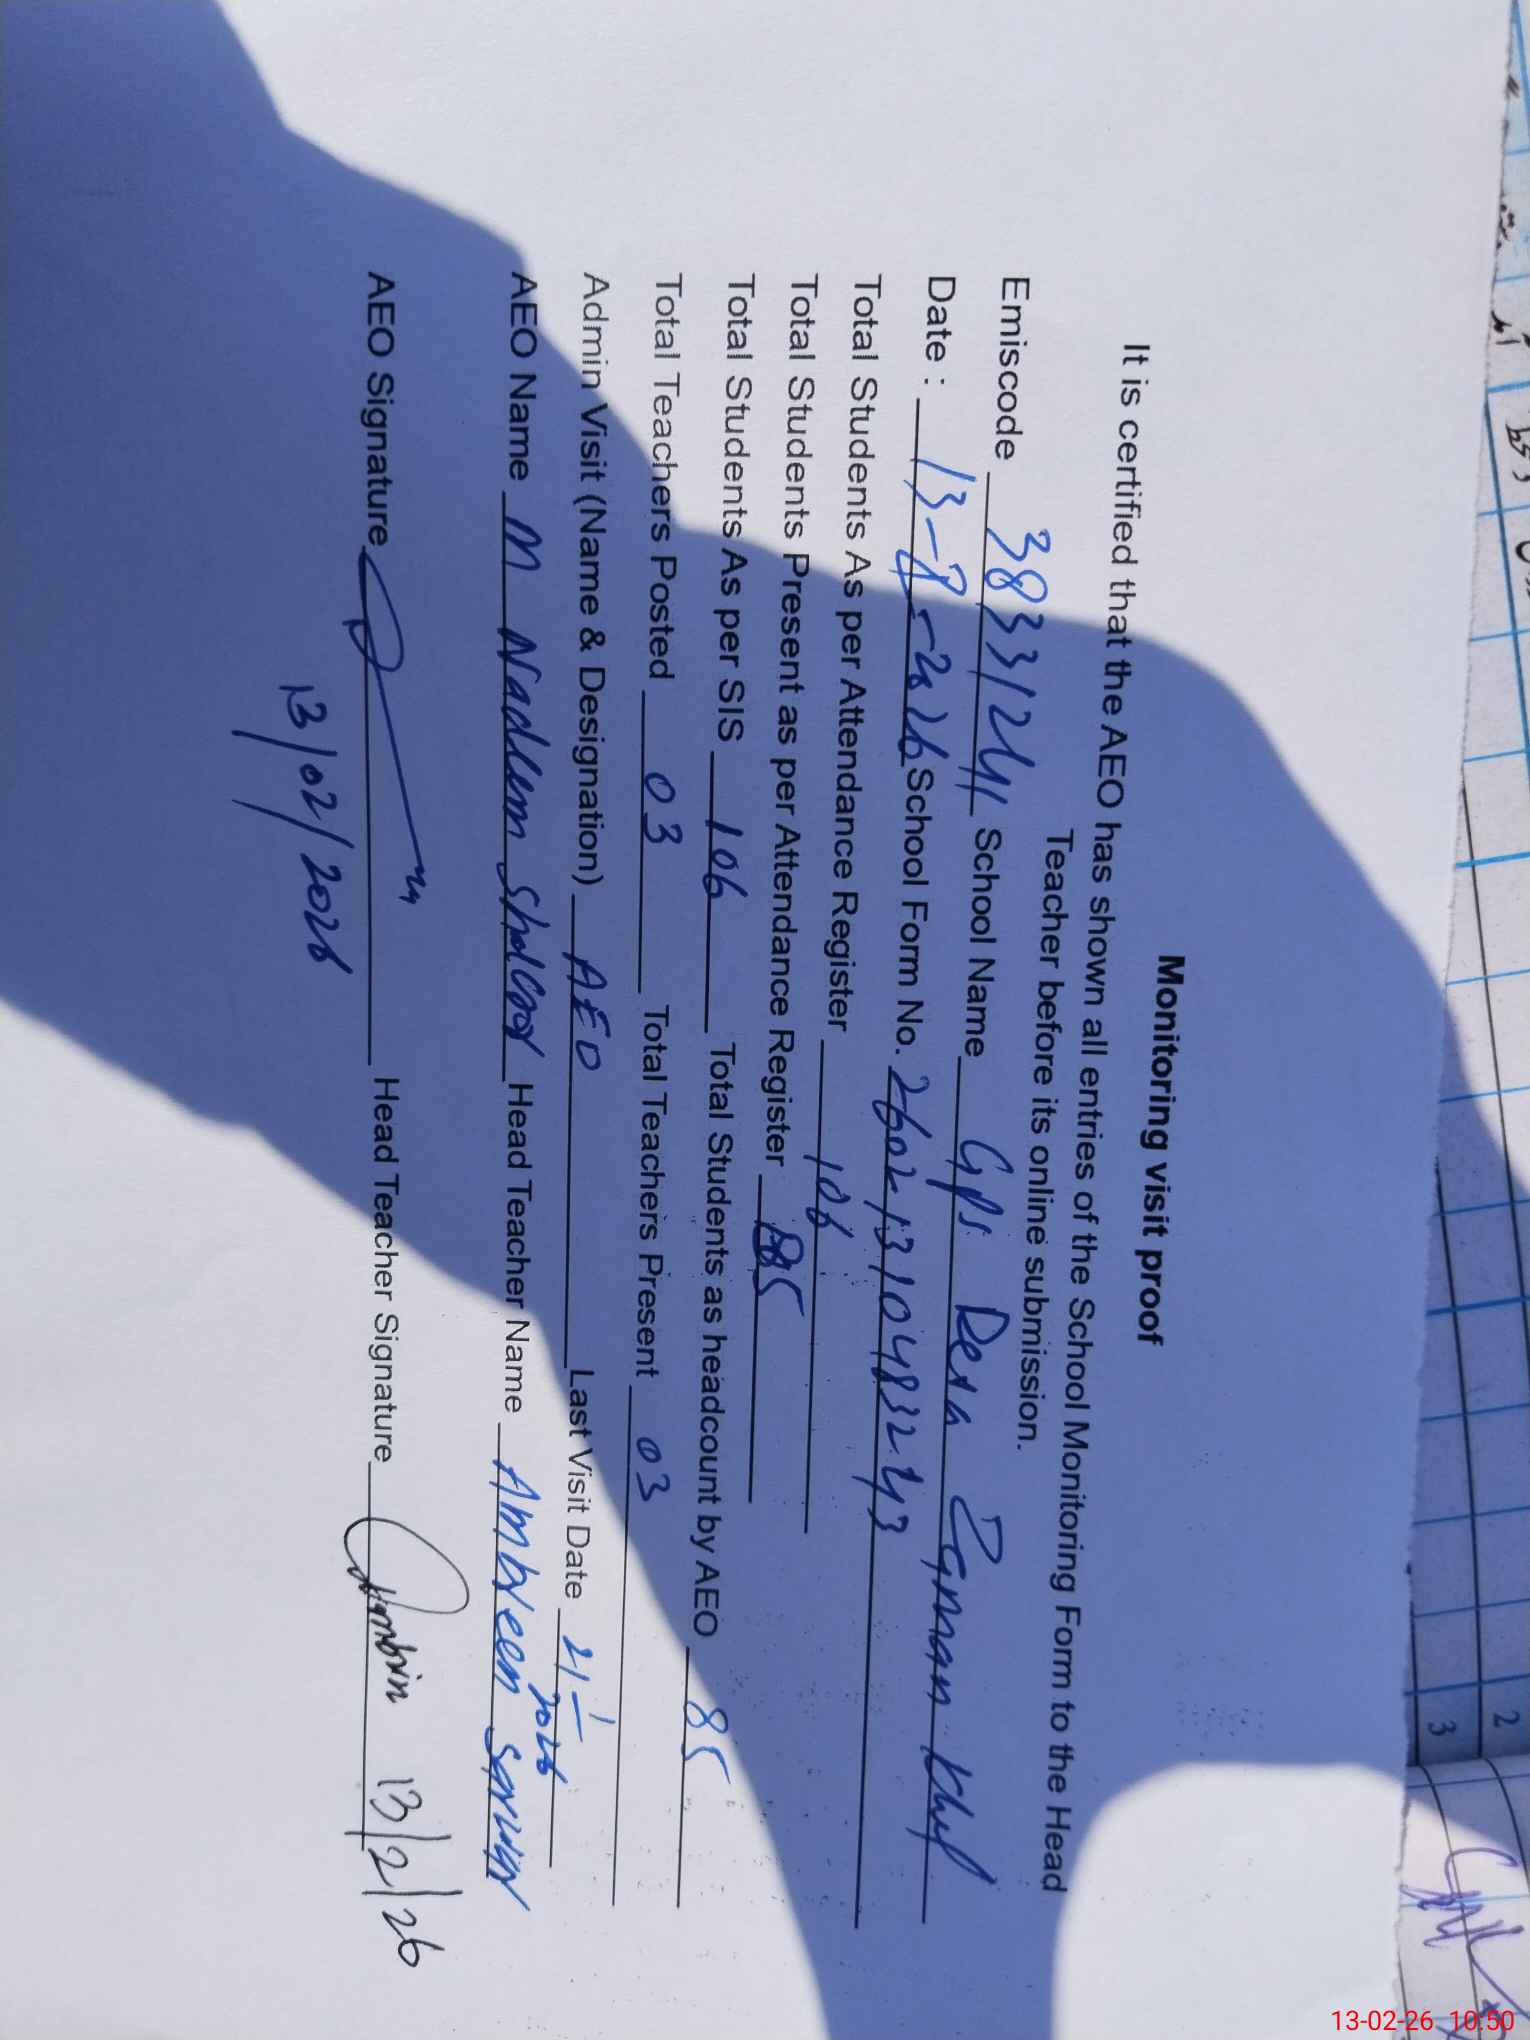 Monitoring visit proof
It is certified that the AEO has shown all entries of the School Monitoring Form to the Head
Teacher before its online submission.
Emiscode 38331241 School Name GPS Dera Zaman Khel
Date : 13-2-2026 School Form No. 26021310483243
Total Students As per Attendance Register 106
Total Students Present as per Attendance Register 85
Total Students As per SIS 106 Total Students as headcount by AEO 85
Total Teachers Posted 03 Total Teachers Present 03
Admin Visit (Name & Designation) AEO Last Visit Date 21-1 2026
AEO Name M Nadeem Head Teacher Name Ambreen
AEO Signature Head Teacher Signature Ambrin 13/2/26
13/02/2026
2
3
13-02-26 10:50